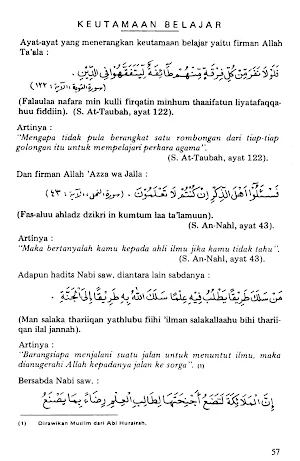 KEUTAMAAN BELAJAR
Ayat-ayat yang menerangkan keutamaan belajar yaitu firman Allah
Ta'ala :
فَلَوْلَا نَفَرَ مِنْ كُلِّ فِرْقَةٍ مِنْهُمْ طَائِفَةٌ لِيَتَفَقَّهُوا فِي الدِّيْنِ .
(سورة التوبة ، الآية : ١٢٢)
(Falaulaa nafara min kulli firqatin minhum thaaifatun liyatafaqqa-
huu fiddiin). (S. At-Taubah, ayat 122).
Artinya :
"Mengapa tidak pula berangkat satu rombongan dari tiap-tiap
golongan itu untuk mempelajari perkara agama".
(S. At-Taubah, ayat 122).
Dan firman Allah 'Azza wa Jalla :
فَسْئَلُوْا أَهْلَ الذِّكْرِ إِنْ كُنْتُمْ لَا تَعْلَمُوْنَ . (سورة النحل ، الآية : ٤٣)
(Fas-aluu ahladz dzikri in kumtum laa ta'lamuun).
(S. An-Nahl, ayat 43).
Artinya :
"Maka bertanyalah kamu kepada ahli ilmu jika kamu tidak tahu".
(S. An-Nahl, ayat 43).
Adapun hadits Nabi saw. diantara lain sabdanya :
مَنْ سَلَكَ طَرِيْقًا يَطْلُبُ فِيْهِ عِلْمًا سَلَكَ اللّٰهُ بِهِ طَرِيْقًا إِلَى الْجَنَّةِ .
(Man salaka thariiqan yathlubu fiihi 'ilman salakallaahu bihi tharii-
qan ilal jannah).
Artinya :
"Barangsiapa menjalani suatu jalan untuk menuntut ilmu, maka
dianugerahi Allah kepadanya jalan ke sorga". (1)
Bersabda Nabi saw. :
إِنَّ الْمَلَائِكَةَ لَتَضَعُ أَجْنِحَتَهَا لِطَالِبِ الْعِلْمِ رِضَاءً بِمَا يَصْنَعُ
(1) Dirawikan Muslim dari Abi Hurairah.
57